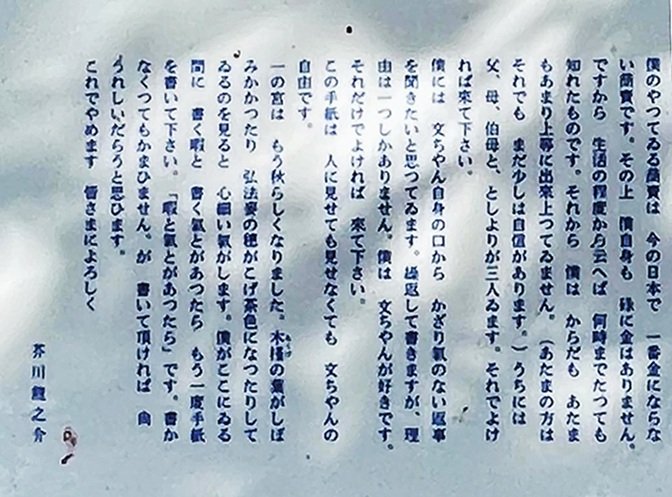 僕のやつてゐる商賣は 今の日本で 一番金にならな
い商賣です。その上 僕自身も 碌に金はありません。
ですから 生活の程度から云へば 何時までたつても
知れたものです。それから 僕は からだも あたま
もあまり上等に出來上つてゐません。(あたまの方は
それでも まだ少しは自信があります。)うちには
父、母、伯母と、としよりが三人ゐます。それでよけ
れば來て下さい。
僕には 文ちやん自身の口から かざり氣のない返事
を聞きたいと思つてゐます。繰返して書きますが、理
由は一つしかありません。僕は 文ちやんが好きです。
それだけでよければ 來て下さい。
この手紙は 人に見せても見せなくても 文ちやんの
自由です。
一の宮は もう秋らしくなりました。木槿の葉がしぼ
むくげ
みかかつたり 弘法麥の穂がこげ茶色になつたりして
ゐるのを見ると 心細い氣がします。僕がここにゐる
間に 書く暇と 書く氣とがあつたら もう一度手紙
を書いて下さい。「暇と氣とがあつたら」です。書か
なくつてもかまひません。が 書いて頂ければ 尚
うれしいだらうと思ひます。
これでやめます 皆さまによろしく
芥川龍之介